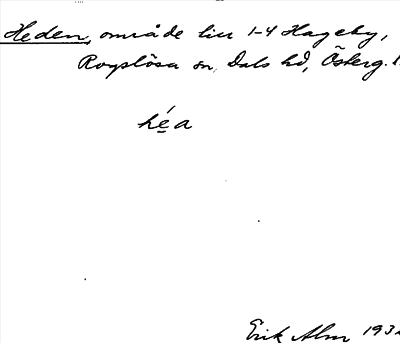 Heden, område till 1-4 Hageby,
Rogslösa sn, Dals hd, Österg. l.
hé̱a
Erik Alm 193